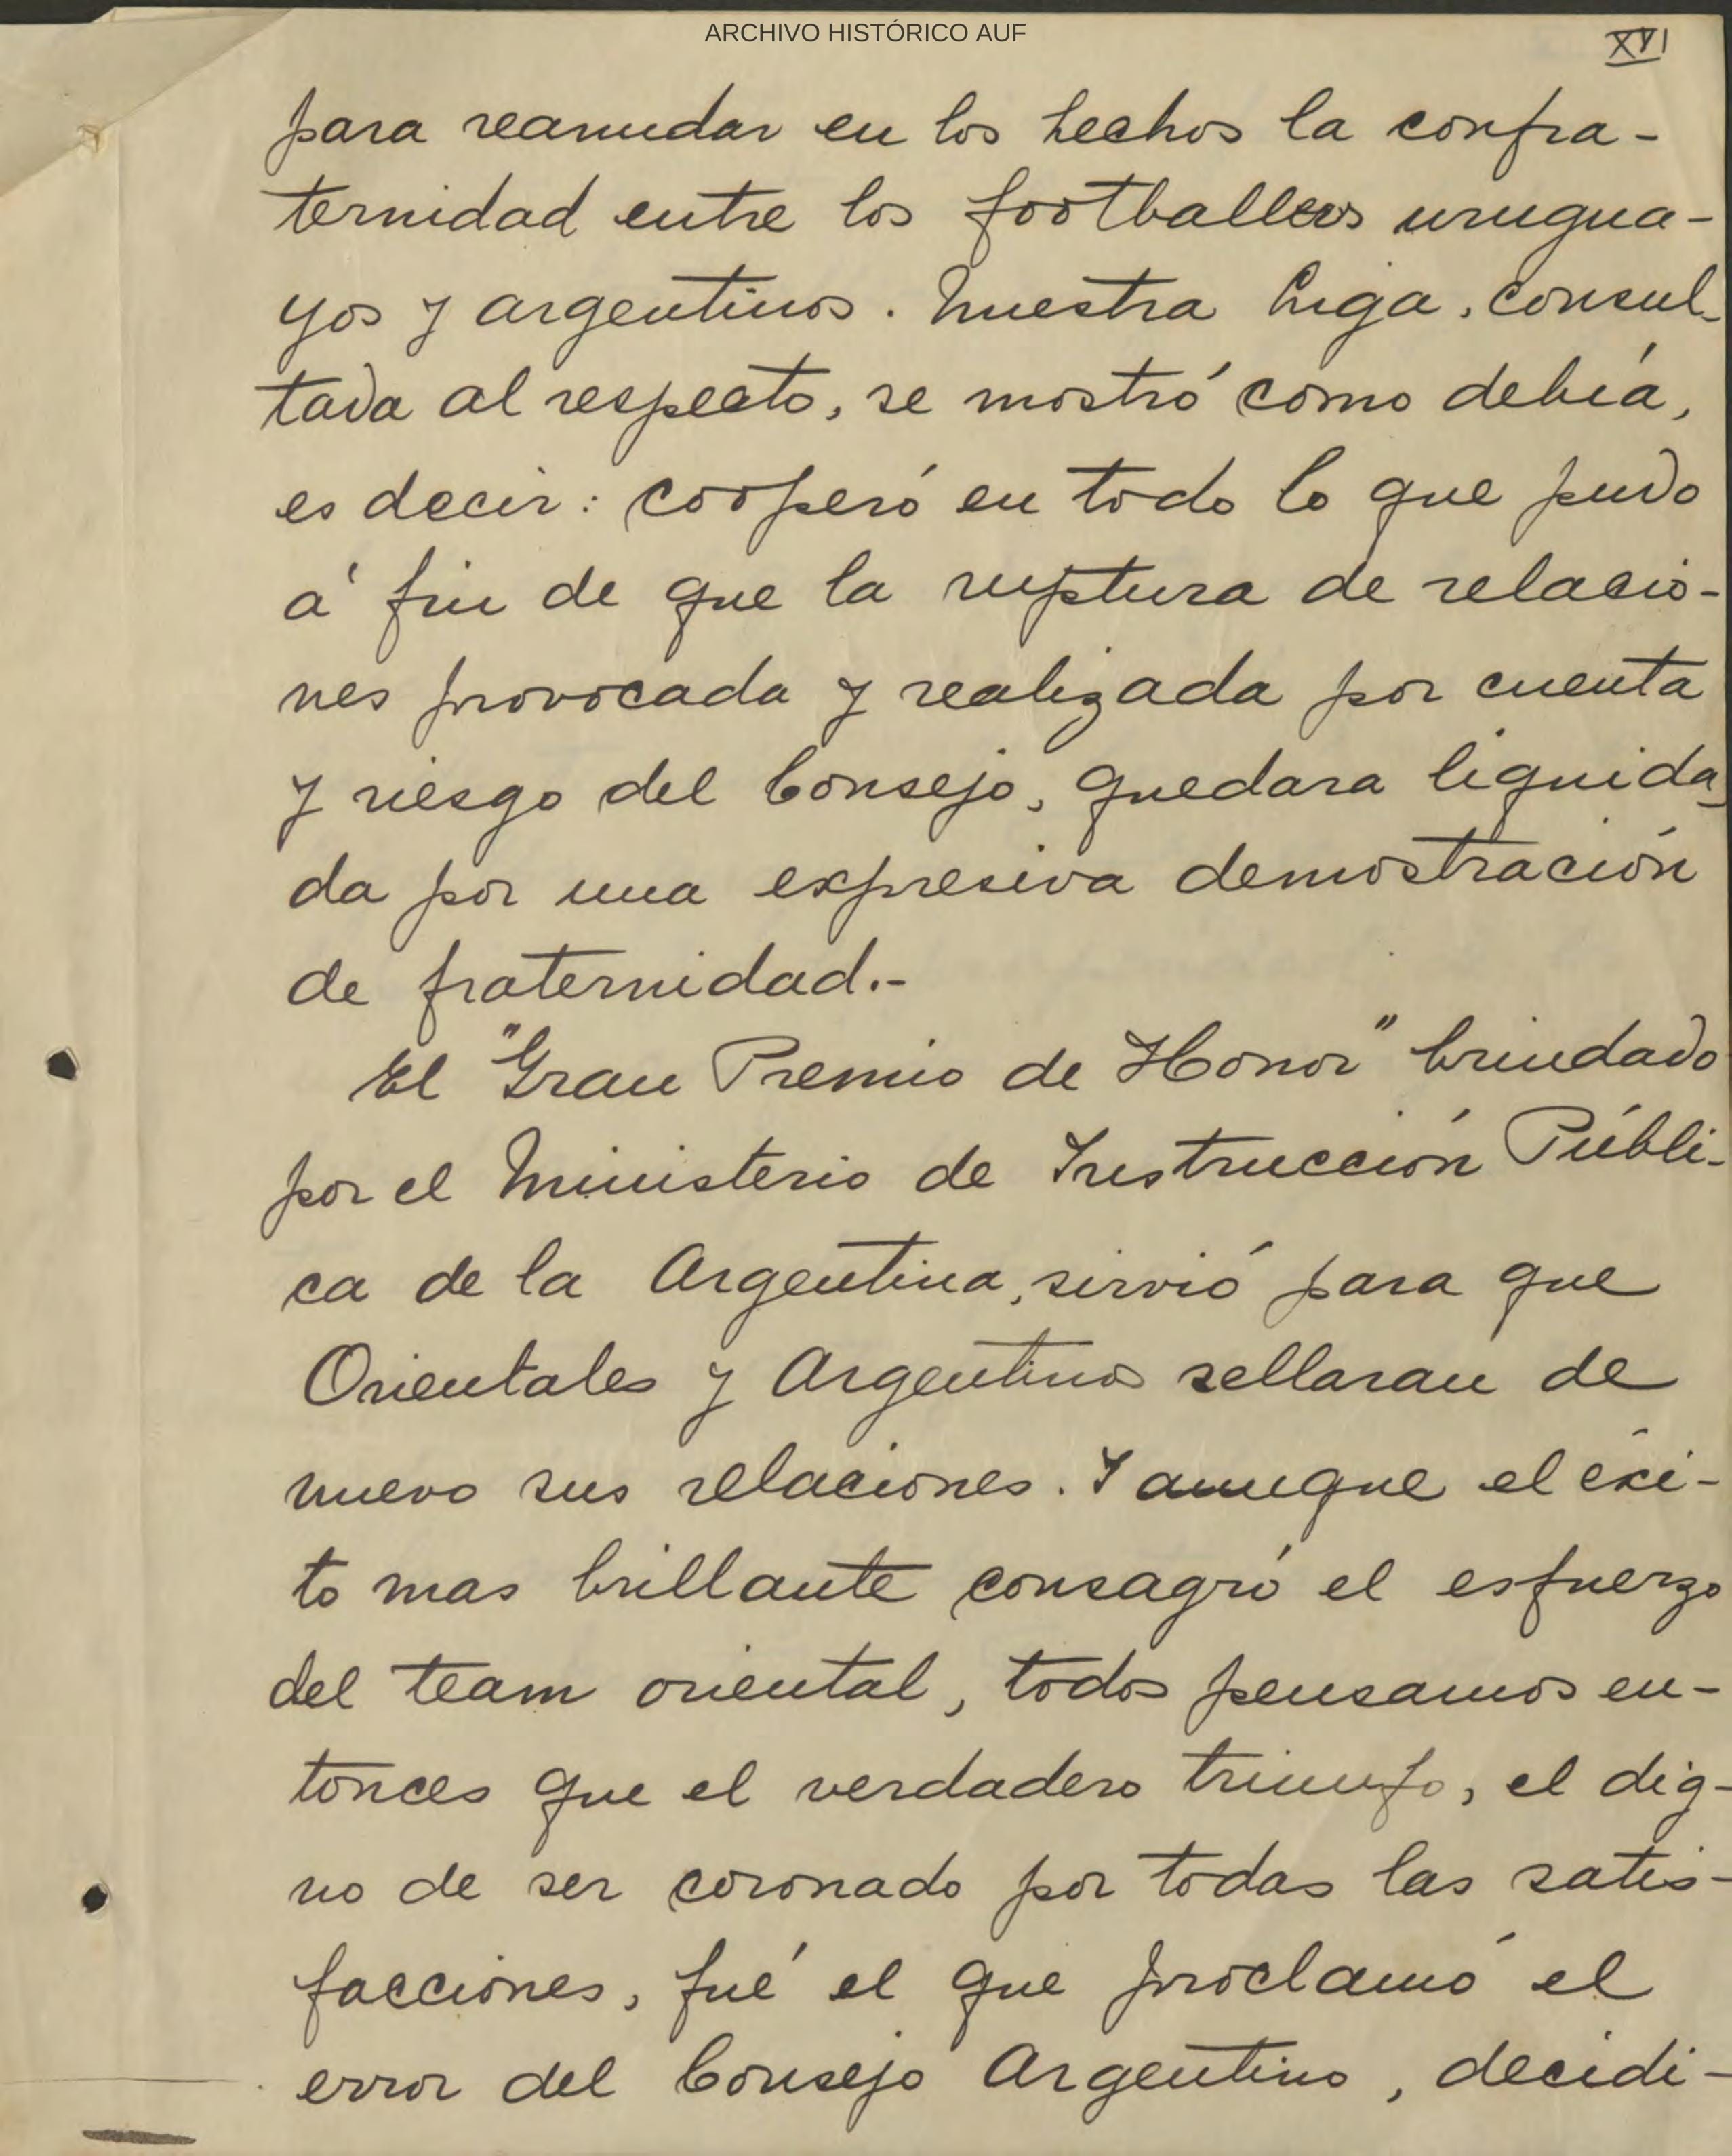 ARCHIVO HISTÓRICO AUF
XVI
para reanudar en los hechos la confra-
ternidad entre los footballers urugua-
yos y argentinos. Nuestra Liga, consul-
tada al respecto, se mostró como debía,
es decir: cooperó en todo lo que pudo
á fin de que la ruptura de relacio-
nes provocada y realizada por cuenta
y riesgo del Consejo, quedara liquida-
da por una expresiva demostración
de fraternidad.-
El "Gran Premio de Honor" brindado
por el Ministerio de Instrucción Públi-
ca de la Argentina, sirvió para que
Orientales y Argentinos sellaran de
nuevo sus relaciones. Y aunque el éxi-
to mas brillante consagró el esfuerzo
del team oriental, todos pensamos en-
tonces que el verdadero triunfo, el dig-
no de ser coronado por todas las satis-
facciones, fué el que proclamó el
error del Consejo Argentino, decidi-